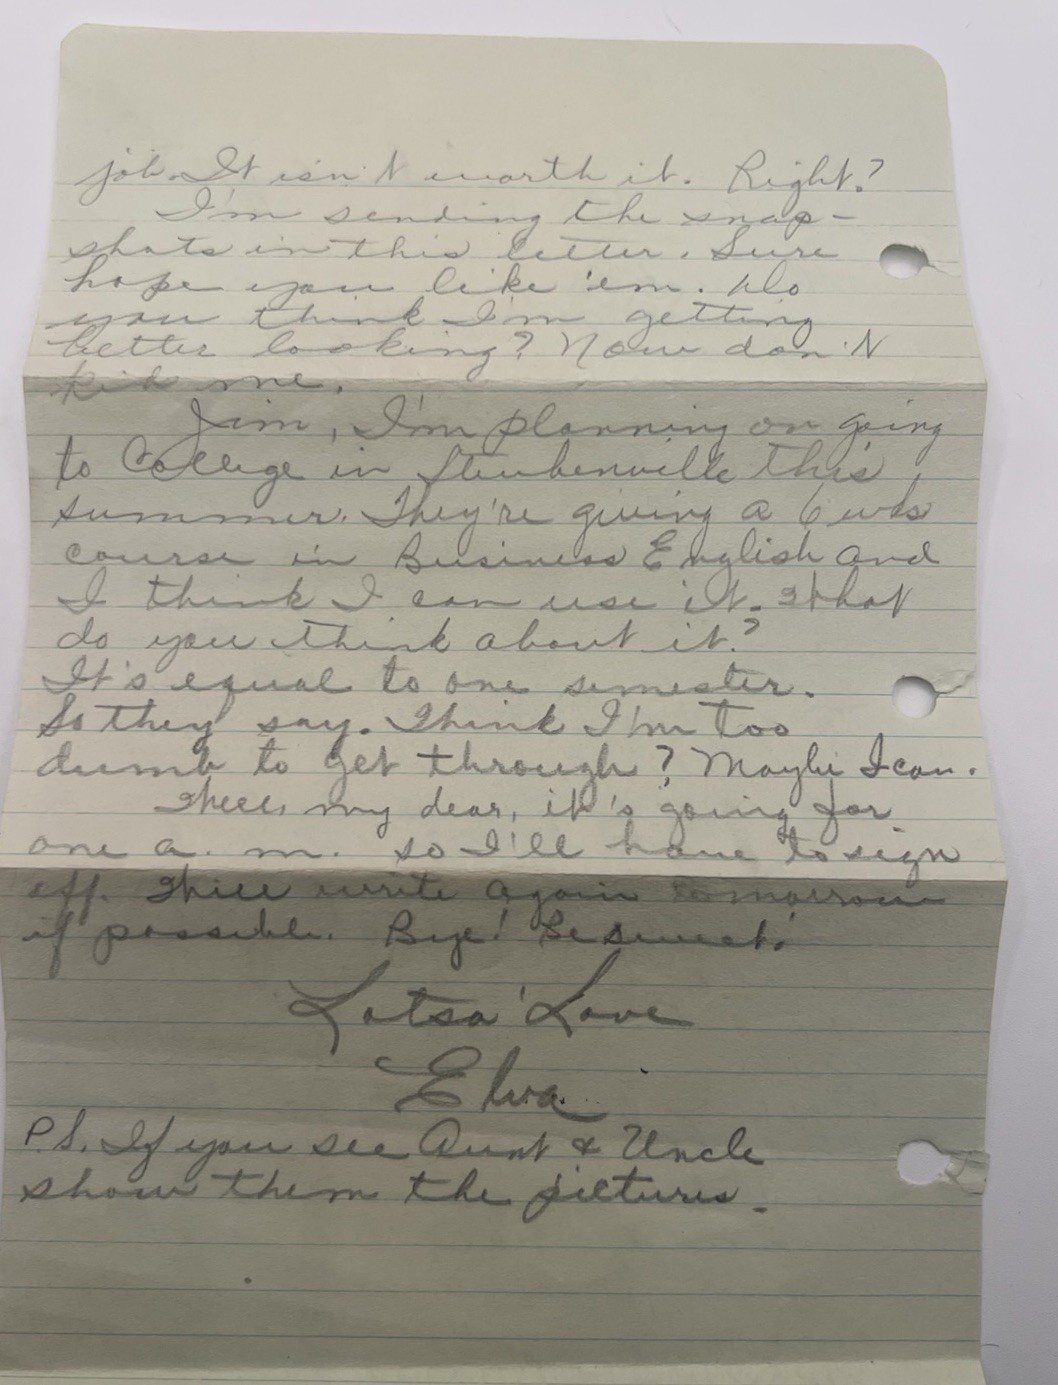 job. It isn't worth it. Right?
I'm sending the snap-
shots in this letter. Sure
hope you like 'em. Do
you think I'm getting
better looking? Now don't
kid me.
Jim, I'm planning on going
to College in Steubenville this
summer. They're giving a 6 wks
course in Business English and
I think I can use it. What
do you think about it?
It's equal to one semester.
So they say. Think I'm too
dumb to get through? Maybe I can.
Well, my dear, it's going for
one a. m. so I'll have to sign
off. Will write again tomorrow
if possible. Bye! Be sweet!
Lotsa' Love
Elva
P.S. If you see Aunt & Uncle
show them the pictures.